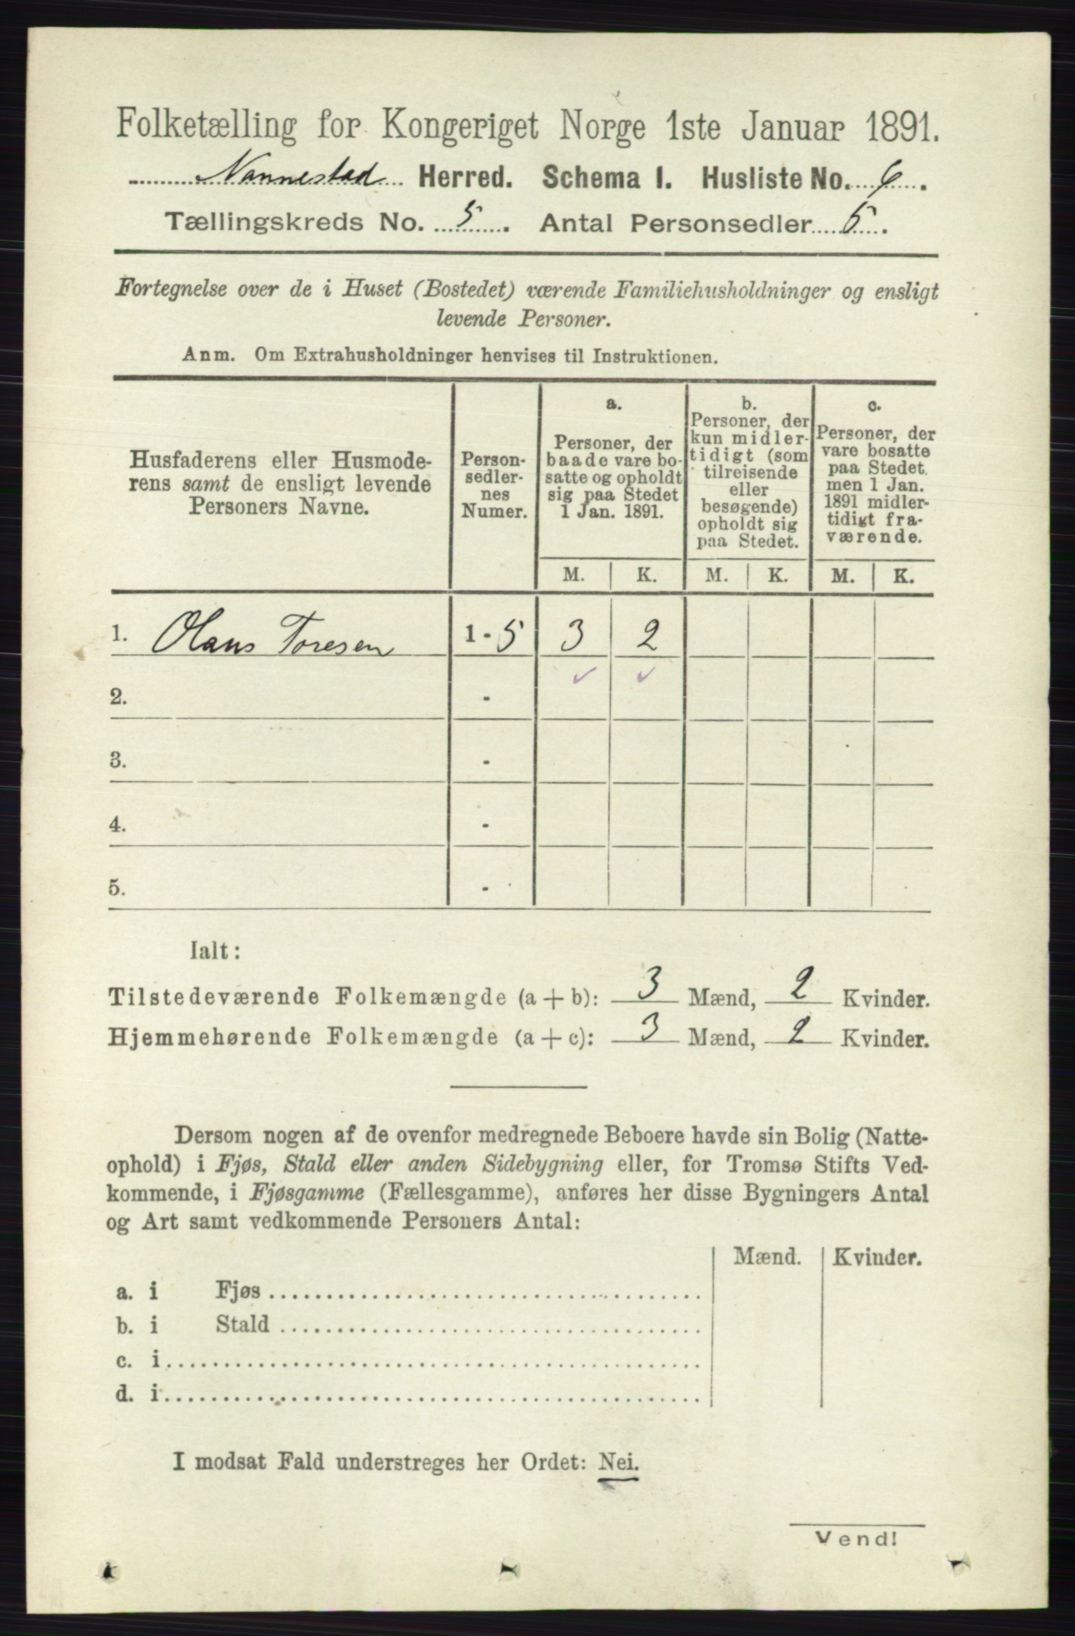 Folketælling for Kongeriget Norge 1ste Januar 1891.
Nannestad Herred. Schema I. Husliste No. 6.
Tællingskreds No. 5. Antal Personsedler 5.
Fortegnelse over de i Huset (Bostedet) værende Familiehusholdninger og ensligt
levende Personer.
Anm. Om Extrahusholdninger henvises til Instruktionen.
Husfaderens eller Husmode-
rens samt de ensligt levende
Personers Navne.
Person-
sedler-
nes
Numer.
a.
Personer, der
baade vare bo-
satte og opholdt
sig paa Stedet
1 Jan. 1891.
b.
Personer, der
kun midler-
tidigt (som
tilreisende
eller
besøgende)
opholdt sig
paa Stedet.
c.
Personer, der
vare bosatte
paa Stedet,
men 1 Jan.
1891 midler-
tidigt fra-
værende.
M. K. M. K. M. K.
1. Olaus Toresen 1 - 5 3 2
2. -
3. -
4. -
5. -
Ialt:
Tilstedeværende Folkemængde (a + b): 3 Mænd, 2 Kvinder.
Hjemmehørende Folkemængde (a + c): 3 Mænd, 2 Kvinder.
Dersom nogen af de ovenfor medregnede Beboere havde sin Bolig (Natte-
ophold) i Fjøs, Stald eller anden Sidebygning eller, for Tromsø Stifts Ved-
kommende, i Fjøsgamme (Fællesgamme), anføres her disse Bygningers Antal
og Art samt vedkommende Personers Antal:
Mænd. Kvinder.
a. i Fjøs
b. i Stald
c. i
d. i
I modsat Fald understreges her Ordet: Nei.
Vend!